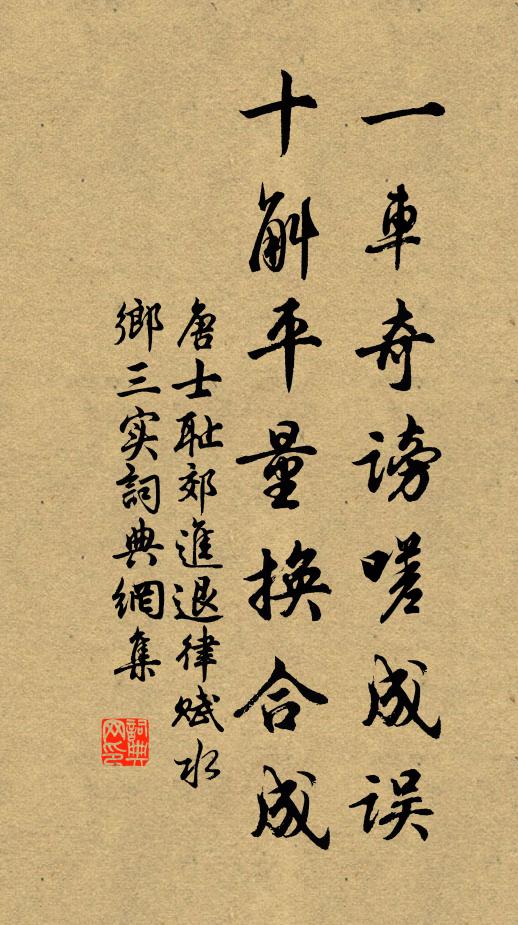 一車奇謗嗟成误
十斛平量换合成
唐士耻郊進退律赋水
鄉三实詞典網集
詞典网印